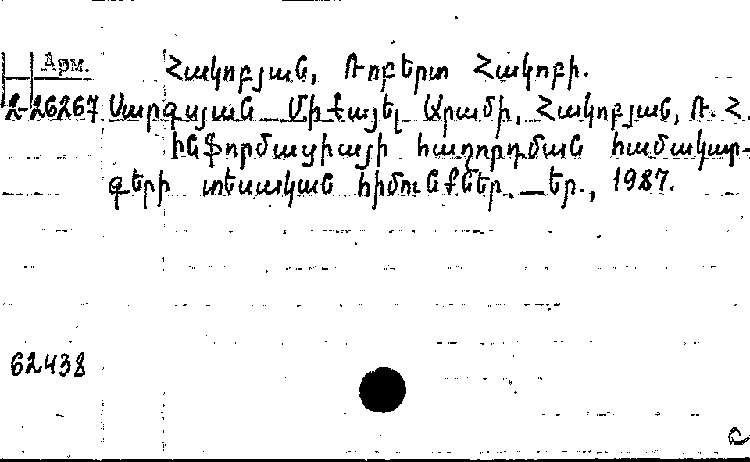 Арм.
Հակոբյան, Ռոբերտ Հակոբի.
2-26267 Սարգսյան Միքայել Արամի, Հակոբյան, Ռ. Հ.
Ինֆորմացիայի հաղորդման համակար-
գերի տեսական հիմունքներ. – Եր., 1987.
62438